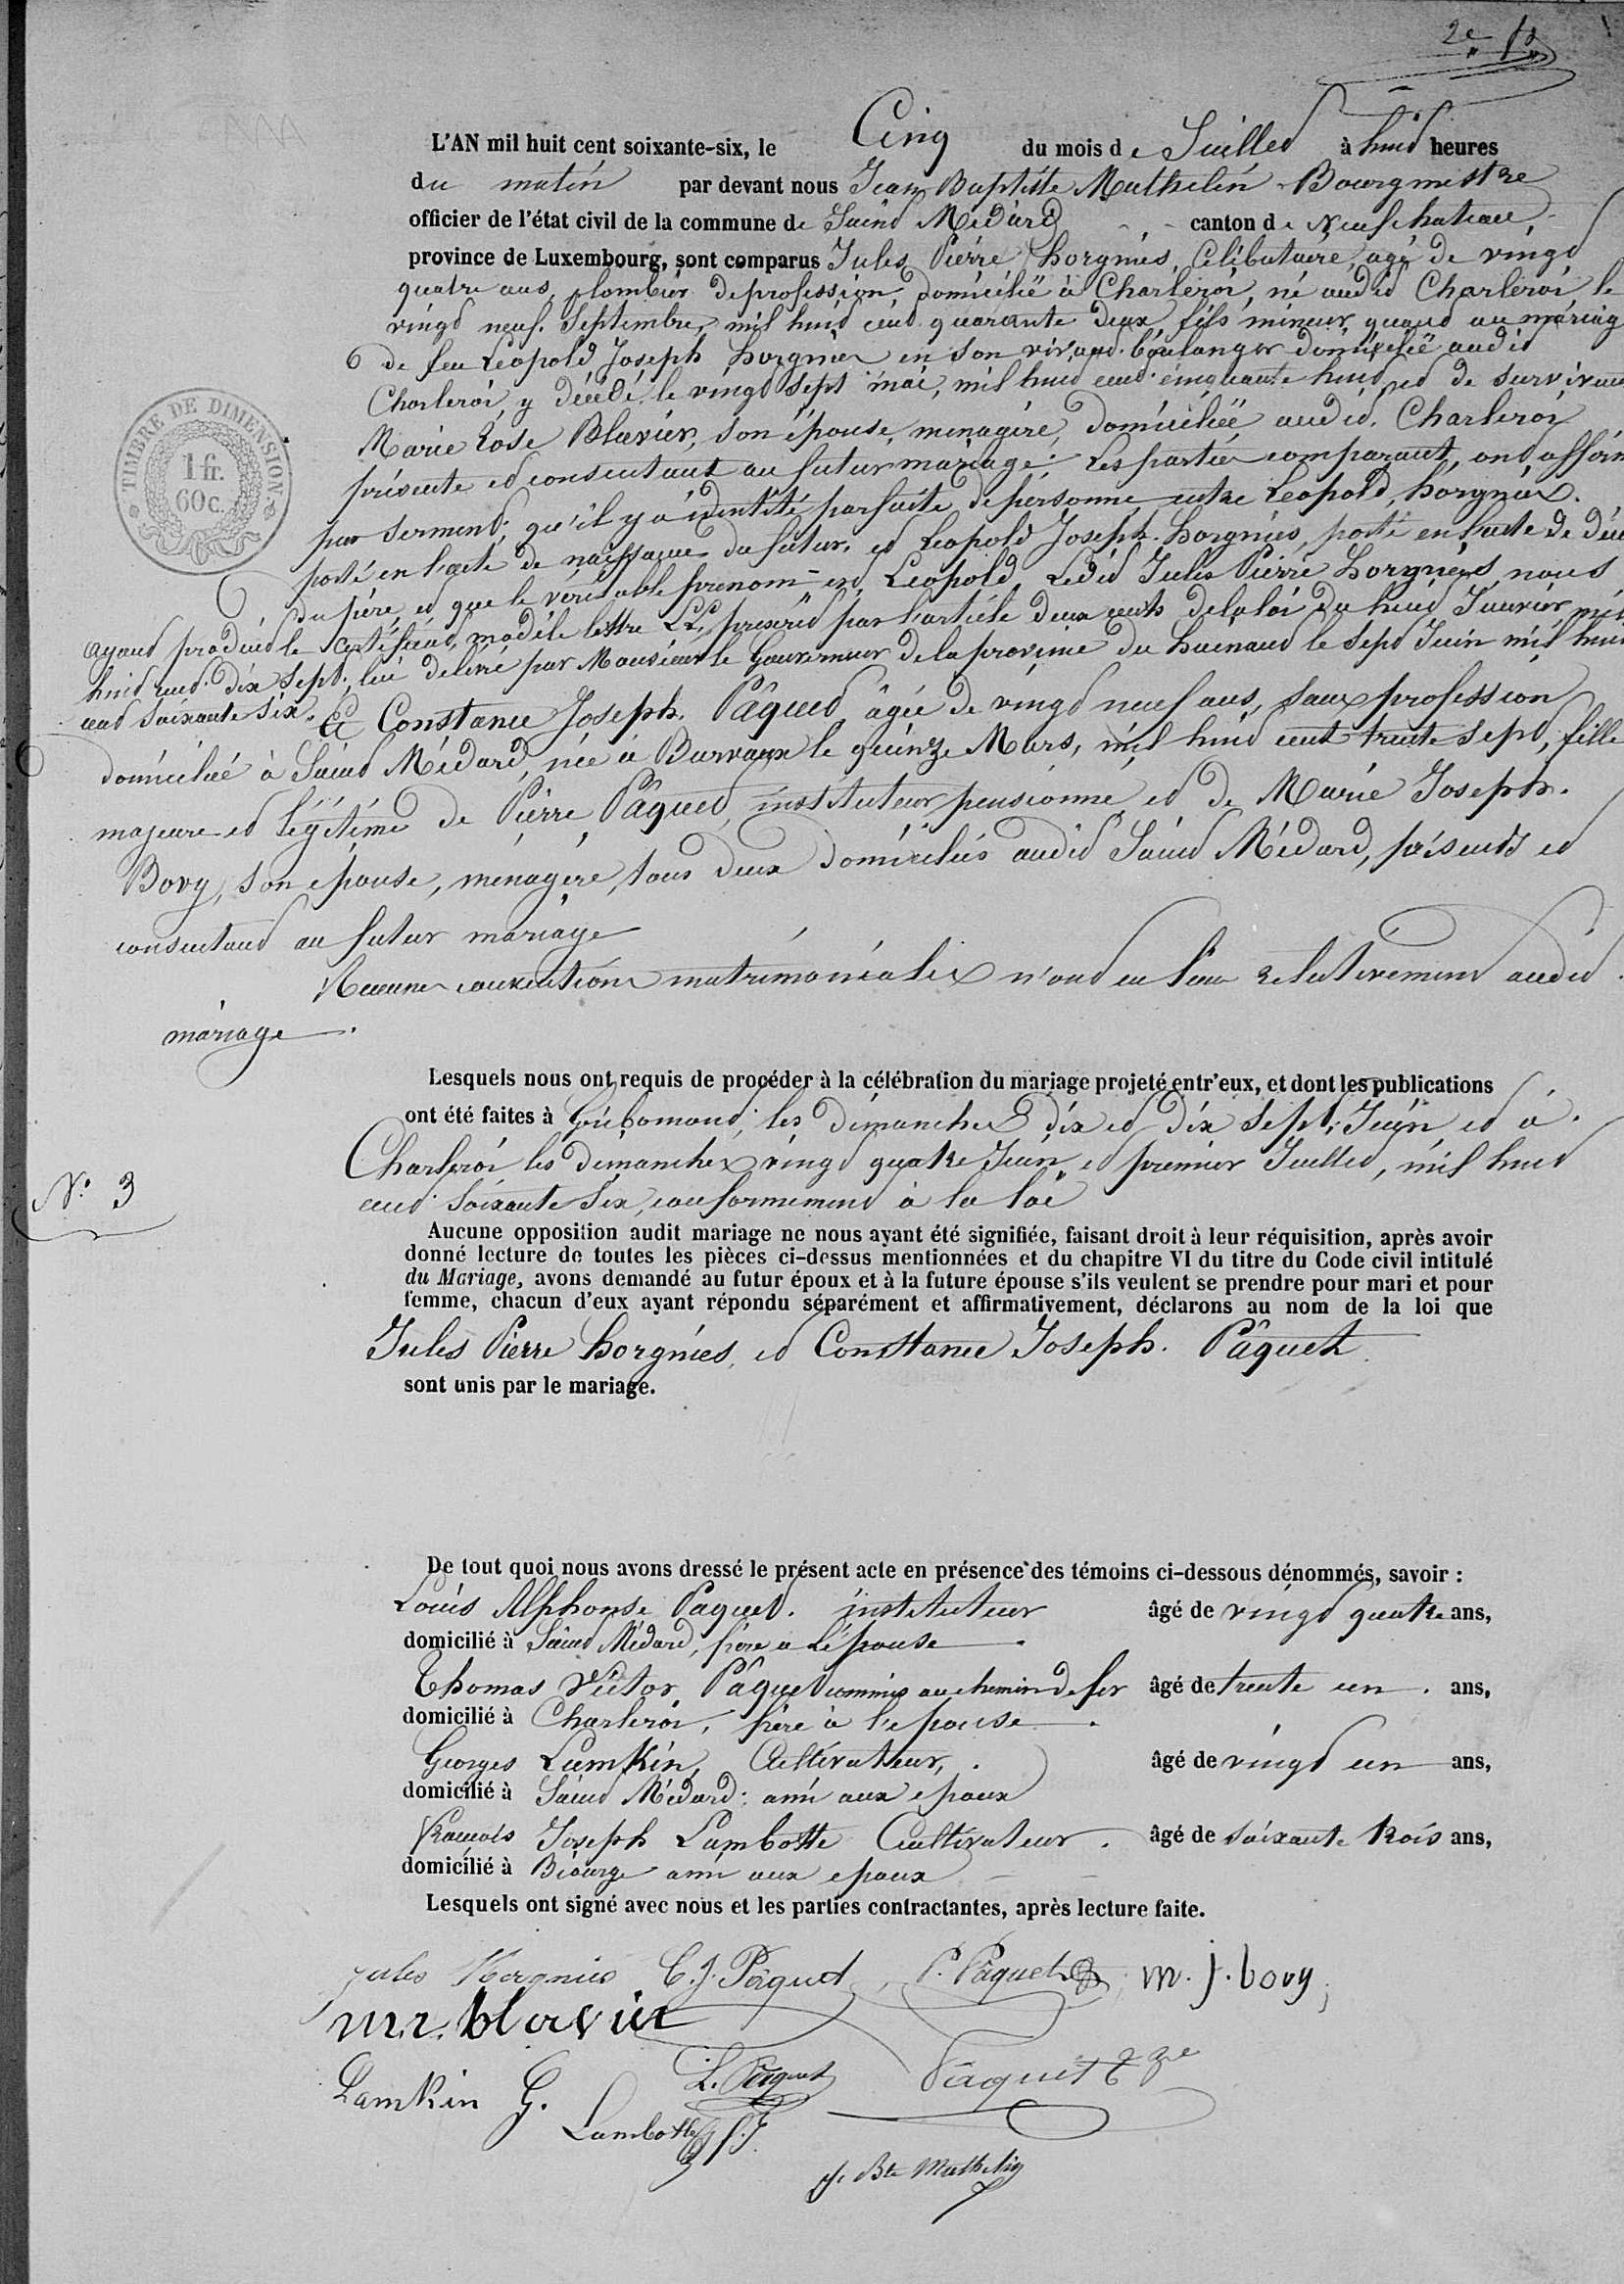 2e
L'AN mil huit cent soixante-six, le Cinq du mois de Juillet à huit heures
du matin par devant nous Jean Baptiste Mathelin Bourgmestre
officier de l'état civil de la commune de Saint Médard canton de Neufchateau
province de Luxembourg, sont comparus Jules Pierre Horgnies, Célibataire, agé de vingt
quatre ans, plombier de profession, domicilié à Charleroi, né audit Charleroi, le
vingt neuf Septembre, mil huit cent quarante deux, fils mineur quant au mariag
de feu Léopold Joseph Horgnies en son vivant boulanger domicilié audit
Charleroi, y décédé le vingt sept mai, mil huit cent cinquante huit, et de survivant
Marie Rose Blavier, son épouse, ménagère, domiciliée audit Charleroi
présente et consentant au futur mariage. Les parties comparant, ont affirm
par serment, qu'il y a identité parfaite de personne entre Léopold, Horgnies.
porté en l'acte de naissance du futur, et Léopold Joseph Horgnies, porté en l'acte de déc
du père, et que le véritable prénom est Léopold. Ledit Jules Pierre Horgnies, nous
ayant produit le certificat, modèle lettre LL, prescrit par l'article deux cents de la loi du huit Janvier, mil
huit cent dix sept, lui délivré par Monsieur le Gouverneur de la province du Hainaut le sept Juin mil huit
cent soixante six. Et Constance Joseph. Pâquet, âgée de vingt neuf ans, sans profession
domiciliée à Saint Médard, née à Barvaux le quinze Mars, mil huit cent trente sept, fille
majeure et légitime de Pierre Pâquet, instituteur pensionné et de Marie Joseph.
Bovy, son épouse, ménagère, tous deux domiciliés audit Saint Médard, présents et
consentant au futur mariage
Aucunes conventions matrimoniales n'ont eu lieu relativement audit
mariage.
Lesquels nous ont requis de procéder à la célébration du mariage projeté entr'eux, et dont les publications
ont été faites à Gribomont, les dimanches dix et dix sept Juin et à
Charleroi les dimanches vingt quatre Juin et premier Juillet, mil huit
N° 3
cent soixante six, conformément à la loi
Aucune opposition audit mariage ne nous ayant été signifiée, faisant droit à leur réquisition, après avoir
donné lecture de toutes les pièces ci-dessus mentionnées et du chapitre VI du titre du Code civil intitulé
du Mariage, avons demandé au futur époux et à la future épouse s'ils veulent se prendre pour mari et pour
femme, chacun d'eux ayant répondu séparément et affirmativement, déclarons au nom de la loi que
Jules Pierre Horgnies, et Constance Joseph. Pâquet
sont unis par le mariage.
De tout quoi nous avons dressé le présent acte en présence des témoins ci-dessous dénommés, savoir :
Louis Alphonse Paquet. instituteur âgé de vingt quatre ans,
domicilié à Saint Médard, frère à l'épouse
Thomas Victor Pâquet commis au chemin de fer âgé de trente un ans,
domicilié à Charleroi, frère à l'épouse
Georges Lamkin, Cultivateur, âgé de vingt un ans,
domicilié à Saint Médard : ami aux époux
François Joseph Lambotte Cultivateur. âgé de soixante trois ans,
domicilié à Biourge ami aux époux
Lesquels ont signé avec nous et les parties contractantes, après lecture faite.
Jules Horgnies C. J. Pâquet P. Pâquet m. j. bovy
m. r. blavier
L. Pâquet Pâquet
Lamkin G.
Lambotte f. J
J. Bte Mathelin
TIMBRE DE DIMENSION
1 fr.
60 c.